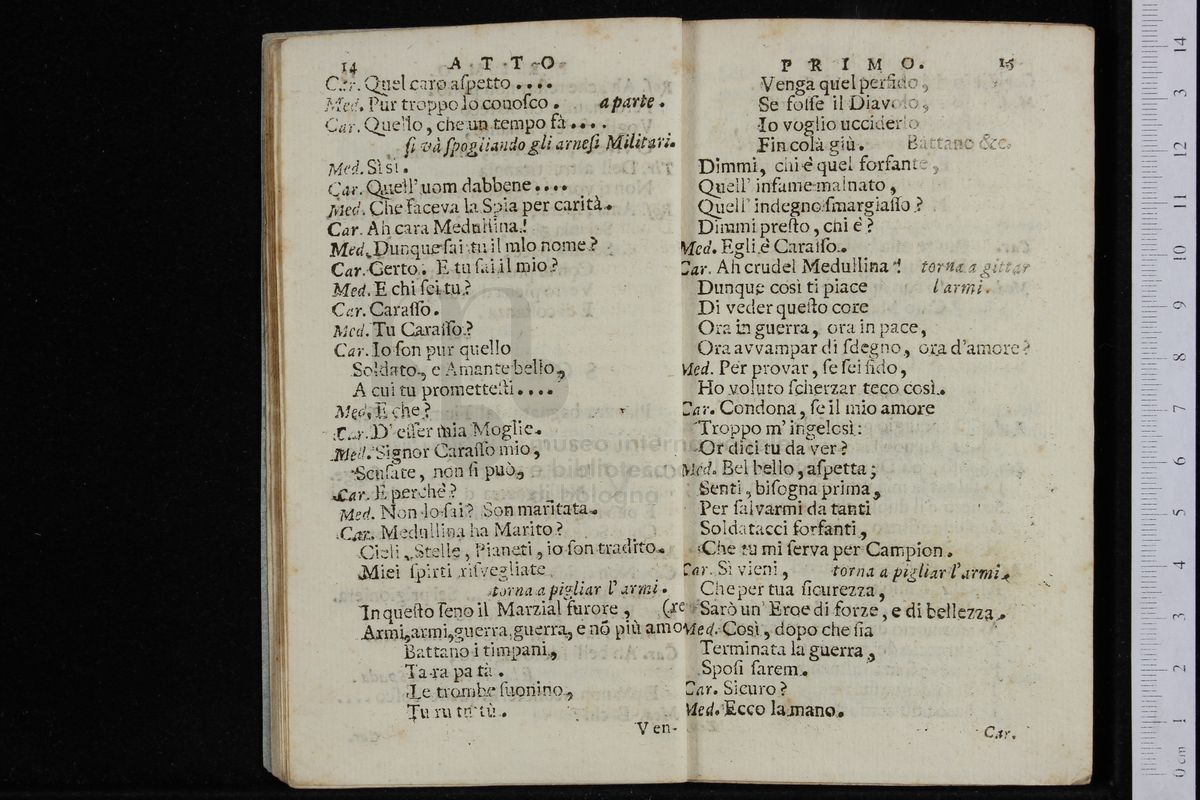 14 ATTO
Car. Quel caro aſpetto ....
Med. Pur troppo lo conoſco . a parte .
Car. Quello, che un tempo fà ....
ſi và ſpogliando gli arneſi Militari.
Med. Sì sì .
Car. Quell' uom dabbene ....
Med. Che faceva la Spia per carità.
Car. Ah cara Medullina!
Med. Dunque ſai tu il mio nome?
Car. Certo. E tu ſai il mio?
Med. E chi ſei tu?
Car. Caraſſo.
Med. Tu Caraſſo?
Car. Io ſon pur quello
Soldato, e Amante bello,
A cui tu prometteſti ....
Med. E che?
Car. D' eſſer mia Moglie.
Med. Signor Caraſſo mio,
Scuſate, non ſi può.
Car. E perchè?
Med. Non lo ſai? Son maritata.
Car. Medullina ha Marito?
Cieli, Stelle, Pianeti, io ſon tradito.
Miei ſpirti riſvegliate
torna a pigliar l' armi .
In queſto ſeno il Marzial furore, (re
Armi, armi, guerra, guerra, e nõ più amo
Battano i timpani,
Ta ra pa tà .
Le trombe ſuonino,
Tu ru tu tù.
Ven-
PRIMO. 15
Venga quel perfido,
Se foſſe il Diavolo,
Io voglio ucciderlo
Fin colà giù. Battano &c.
Dimmi, chi è quel forfante,
Quell' infame malnato,
Quell' indegno ſmargiaſſo?
Dimmi preſto, chi è?
Med. Egli è Caraſſo.
Car. Ah crudel Medullina! torna a gittar
Dunque così ti piace l'armi.
Di veder queſto core
Ora in guerra, ora in pace,
Ora avvampar di ſdegno, ora d'amore?
Med. Per provar, ſe ſei fido,
Ho voluto ſcherzar teco così.
Car. Condona, ſe il mio amore
Troppo m' ingelosì:
Or dici tu da ver?
Med. Bel bello, aſpetta;
Senti, biſogna prima,
Per ſalvarmi da tanti
Soldatacci forfanti,
Che tu mi ſerva per Campion.
Car. Sì vieni, torna a pigliar l'armi.
Che per tua ſicurezza,
Sarò un' Eroe di forze, e di bellezza.
Med. Così, dopo che ſia
Terminata la guerra,
Spoſi ſarem.
Car. Sicuro?
Med. Ecco la mano.
Car.
museo internazionale
e biblioteca
di bologna
0 cm 1 2 3 4 5 6 7 8 9 10 11 12 13 14